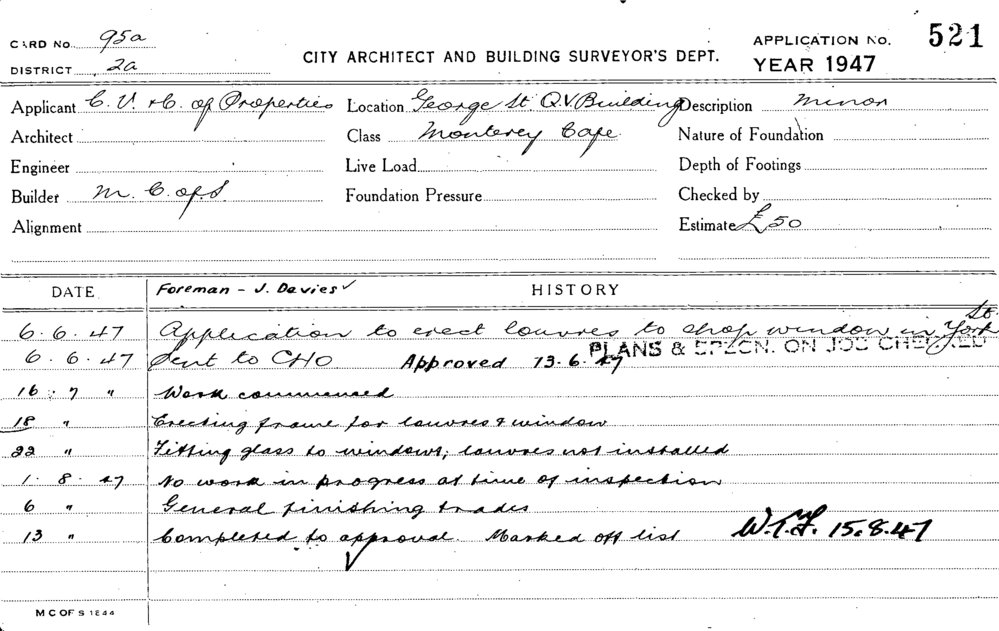 CARD No. 95a
DISTRICT 2a
CITY ARCHITECT AND BUILDING SURVEYOR'S DEPT.
APPLICATION NO. 521
YEAR 1947
Applicant C. V. & C. of Properties Location George St Q.V. Building Description Minor
Architect Class Monterey Cafe Nature of Foundation
Engineer Live Load Depth of Footings
Builder M. C. of S. Foundation Pressure Checked by
Alignment Estimate £50
DATE Foreman - J. Davies ✓ HISTORY
6. 6. 47 Application to erect louvres to shop window in York St.
6. 6. 47 Sent to CHO Approved 13.6.47 PLANS & SPECN. ON JOB CHECKED
16 . 7 " Work commenced
18 " Erecting frame for louvres & window
22 " Fitting glass to windows; louvres not installed
1. 8. 47 No work in progress at time of inspection
6 " General finishing trades
13 " Completed to approval. Marked off list W.T.F. 15.8.47
M C OF S 1844